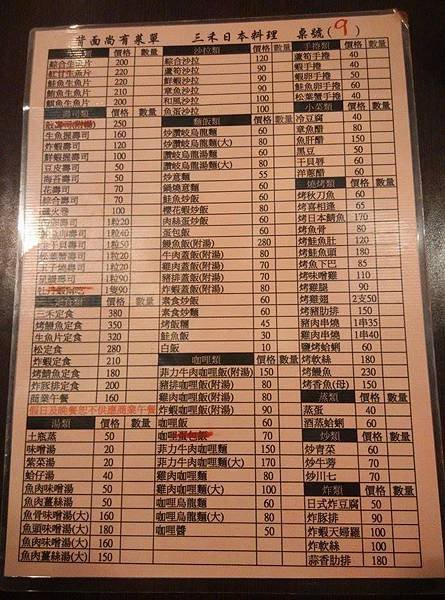 背面尚有菜單 三禾日本料理 桌號(9)
價格 數量
綜合生魚片 200
紅甘生魚片 220
鮭魚生魚片 200
旗魚生魚片 200
壽司類 價格 數量
250
生魚握壽司 160
炸蝦壽司 120
鮮蝦握壽司 100
豆皮壽司 50
海苔壽司 50
花壽司 70
綜合壽司 60
1粒20
1粒40
1粒50
1粒30
1粒30
1隻90
價格 數量
三禾定食 380
烤鰻魚定食 350
生魚片定食 320
松定食 280
炸蝦定食 210
烤鯖魚定食 180
炸豚排定食 180
商業午餐 160
假日及晚餐恕不供應商業午餐
湯類 價格 數量
土瓶蒸 50
味噌湯 20
紫菜湯 20
蛤仔湯 40
魚肉味噌湯 50
魚肉薑絲湯 50
魚骨味噌湯(大) 160
魚頭味噌湯(大) 180
魚肉味噌湯(大) 160
魚肉薑絲湯(大) 150
沙拉類 價格 數量
綜合沙拉 120
蘆筍沙拉 90
鮮蝦沙拉 100
章魚沙拉 100
和風沙拉 90
鮭魚沙拉 100
麵飯類 價格 數量
炒讚岐烏龍麵 60
炒讚岐烏龍麵(大) 80
讚岐烏龍湯麵 60
讚岐烏龍湯麵(大) 80
炒意麵 50
鍋燒意麵 60
鮭魚炒飯 60
櫻花蝦炒飯 60
肉絲蛋炒飯 60
蛋包飯 60
鰻魚飯(附湯) 280
牛肉蓋飯(附湯) 80
雞肉蓋飯(附湯) 70
豬排蓋飯(附湯) 70
炸蝦蓋飯(附湯) 80
素食炒飯 60
素食炒麵 60
烤飯糰 45
鮭魚飯 30
白飯 10
咖哩類 價格 數量
菲力牛肉咖哩飯(附湯) 150
豬排咖哩飯(附湯) 80
雞肉咖哩飯(附湯) 80
炸蝦咖哩飯(附湯) 90
咖哩飯 60
咖哩蛋包飯 70
菲力牛肉咖哩麵 150
菲力牛肉咖哩麵(大) 170
雞肉咖哩麵 80
雞肉咖哩麵(大) 100
咖哩烏龍麵 60
咖哩烏龍麵(大) 80
咖哩醬 50
手捲類 價格 數量
蘆筍手捲 40
蝦手捲 50
蝦卵手捲 50
鮭魚卵手捲 60
松葉蟹手捲 40
小菜類 價格 數量
冷豆腐 40
章魚醋 80
魚肝醋 150
黑豆 50
干貝唇 60
洋蔥醋 60
燒烤類 價格 數量
烤秋刀魚 60
烤喜相逢 65
烤日本鯖魚 170
烤魚骨 80
烤鮭魚肚 120
烤鮭魚頭 180
烤魚下巴 85
烤味噌雞 110
烤雞腿 90
烤雞翅 2支50
烤豬肋排 170
豬肉串燒 1串35
雞肉串燒 1串40
鹽烤蛤蜊 60
烤軟絲 180
烤鰻魚 230
烤香魚(母) 150
蒸類 價格 數量
蒸蛋 40
酒蒸蛤蜊 60
炒類 價格 數量
炒青菜 60
炒牛蒡 60
炒川七 70
炸類 價格 數量
日式炸豆腐 50
炸豚排 90
炸蝦天婦羅 100
炸軟絲 100
蒜香肋排 180